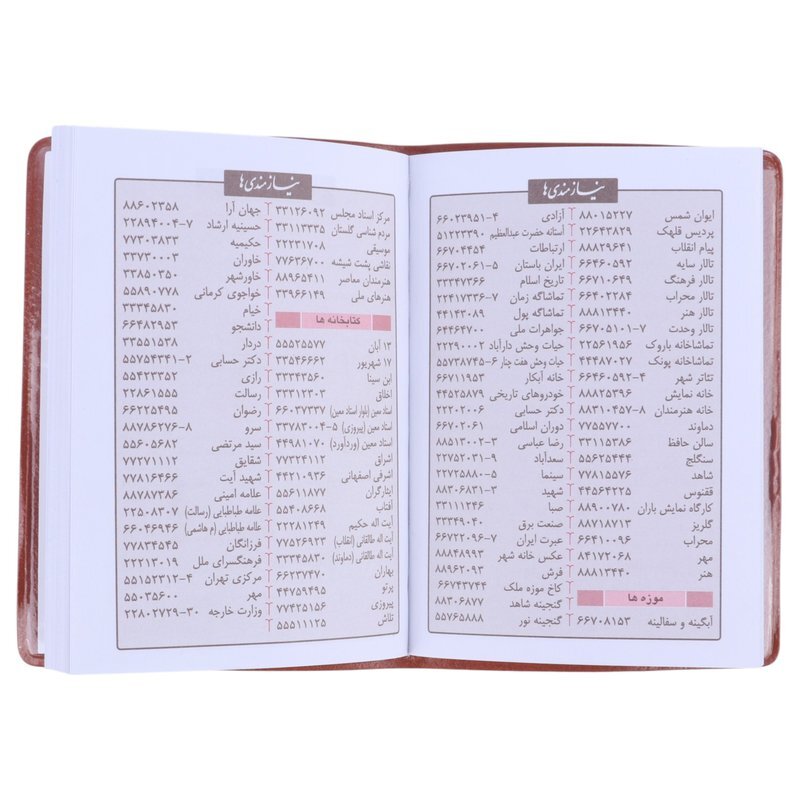 نیازمندی‌ها
ایوان شمس ۸۸۰۱۵۲۲۷
پردیس قلهک ۲۲۶۴۳۸۲۹
پیام انقلاب ۸۸۸۲۹۶۴۱
تالار سایه ۶۶۴۶۰۵۹۲
تالار فرهنگ ۶۶۷۱۰۶۴۹
تالار محراب ۶۶۴۰۲۲۸۴
تالار هنر ۸۸۸۱۳۴۴۰
تالار وحدت ۶۶۷۰۵۱۰۱-۷
تماشاخانه باروک ۲۲۵۶۱۹۵۶
تماشاخانه پونک ۴۴۴۸۷۰۲۷
تئاتر شهر ۶۶۴۶۰۵۹۲-۴
خانه نمایش ۸۸۸۲۵۳۹۶
خانه هنرمندان ۸۸۳۱۰۴۵۷-۸
دماوند ۷۷۵۵۷۷۰۰
سالن حافظ ۳۳۱۱۵۳۸۶
سنگلج ۵۵۶۲۵۴۴۴
شاهد ۷۷۸۱۵۵۷۶
ققنوس ۴۴۵۶۴۲۲۵
کارگاه نمایش باران ۸۸۹۰۰۷۸۰
گلریز ۸۸۷۱۸۷۱۳
محراب ۶۶۴۱۰۰۹۶
مهر ۸۴۱۷۲۰۶۸
هنر ۸۸۸۱۳۴۴۰
موزه ها
آبگینه و سفالینه ۶۶۷۰۸۱۵۳
آزادی ۶۶۰۲۳۹۵۱-۴
آستانه حضرت عبدالعظیم ۵۱۲۲۳۳۹۰
ارتباطات ۶۶۷۰۴۴۵۴
ایران باستان ۶۶۷۰۲۰۶۱-۵
تاریخ اسلام ۳۳۳۴۷۳۶۶
تماشاگه زمان ۲۲۴۱۷۳۳۶-۷
تماشاگه پول ۴۴۱۴۳۰۸۹
جواهرات ملی ۶۴۴۶۴۷۰۰
حیات وحش دارآباد ۲۲۲۹۰۰۰۲
حیات وحش هفت چنار ۵۵۷۳۸۷۴۵-۶
خانه آبکار ۶۶۷۱۱۹۵۳
خودروهای تاریخی ۴۴۵۲۵۸۷۹
دکتر حسابی ۲۲۲۰۲۰۰۶
دوران اسلامی ۶۶۷۰۲۰۶۱
رضا عباسی ۸۸۵۱۳۰۰۲-۳
سعدآباد ۲۲۷۵۲۰۳۱-۹
سینما ۲۲۷۲۵۸۸۰-۵
شهید ۸۸۳۰۶۸۳۱-۳
صبا ۳۳۱۱۱۲۴۶
صنعت برق ۳۳۳۴۹۰۴۰
عبرت ایران ۶۶۷۲۲۰۹۶-۷
عکس خانه شهر ۸۸۸۴۸۹۹۳
فرش ۸۸۹۶۲۰۹۳
کاخ موزه ملک ۶۶۷۴۳۷۴۴
گنجینه شاهد ۸۸۳۰۶۸۷۷
گنجینه نور ۵۵۷۶۵۸۸۸
نیازمندی‌ها
مرکز اسناد مجلس ۳۳۱۲۶۰۹۲
مردم شناسی گلستان ۳۳۱۱۳۳۳۵
موسیقی ۲۲۲۳۱۷۰۸
نقاشی پشت شیشه ۷۷۶۳۶۷۰۰
هنرمندان معاصر ۸۸۹۶۵۴۱۱
هنرهای ملی ۳۳۹۶۶۱۴۹
کتابخانه ها
۱۳ آبان ۵۵۵۲۵۵۷۷
۱۷ شهریور ۳۳۵۴۶۶۶۲
ابن سینا ۳۳۳۴۳۵۶۰
اخلاق ۳۳۳۱۲۳۰۳
استاد معین (بلوار استاد معین) ۶۶۰۳۷۳۳۷
استاد معین (پیروزی) ۳۳۷۸۳۰۰۴-۵
استاد معین (وردآورد) ۴۴۹۸۱۰۷۰
اشراق ۷۷۳۲۴۱۱۲
اشرفی اصفهانی ۴۴۲۱۰۹۳۶
ایثارگران ۵۵۶۱۱۸۷۷
آفتاب ۵۵۴۰۸۶۶۸
آیت اله حکیم ۲۲۲۸۱۲۴۹
آیت اله طالقانی (انقلاب) ۷۷۵۲۶۹۲۳
آیت اله طالقانی (دماوند) ۳۳۳۴۵۸۳۰
بهاران ۶۶۲۳۷۴۷۰
پرتو ۴۴۷۵۹۴۹۵
پیروزی ۷۷۴۲۵۱۵۶
تلاش ۵۵۵۱۱۱۲۵
جهان آرا ۸۸۶۰۲۳۵۸
حسینیه ارشاد ۲۲۸۹۴۰۰۴-۷
حکیمیه ۷۷۳۰۳۸۳۳
خاوران ۳۳۷۳۰۰۰۳
خاورشهر ۳۳۸۵۰۳۵۰
خواجوی کرمانی ۵۵۸۹۰۷۷۸
خیام ۳۳۳۴۵۸۳۰
دانشجو ۶۶۴۸۲۹۵۳
دردار ۳۳۵۵۱۵۳۸
دکتر حسابی ۵۵۷۵۴۳۴۱-۲
رازی ۵۵۴۲۳۳۵۲
رسالت ۲۲۸۶۱۵۵۵
رضوان ۶۶۲۲۵۴۹۵
سرو ۸۸۷۸۶۲۷۶-۸
سید مرتضی ۵۵۶۰۵۶۸۲
شقایق ۷۷۲۷۱۱۱۲
شهید آیت ۷۷۸۱۶۴۶۶
علامه امینی ۸۸۷۸۷۳۸۶
علامه طباطبایی (رسالت) ۲۲۵۰۸۳۰۷
علامه طباطبایی (م هاشمی) ۶۶۰۴۶۹۴۶
فرزانگان ۷۷۸۳۴۵۴۵
فرهنگسرای ملل ۲۲۲۱۳۰۱۹
مرکزی تهران ۵۵۱۵۲۳۱۲-۴
مهر ۵۵۰۳۵۶۰۰
وزارت خارجه ۲۲۸۰۲۷۲۹-۳۰